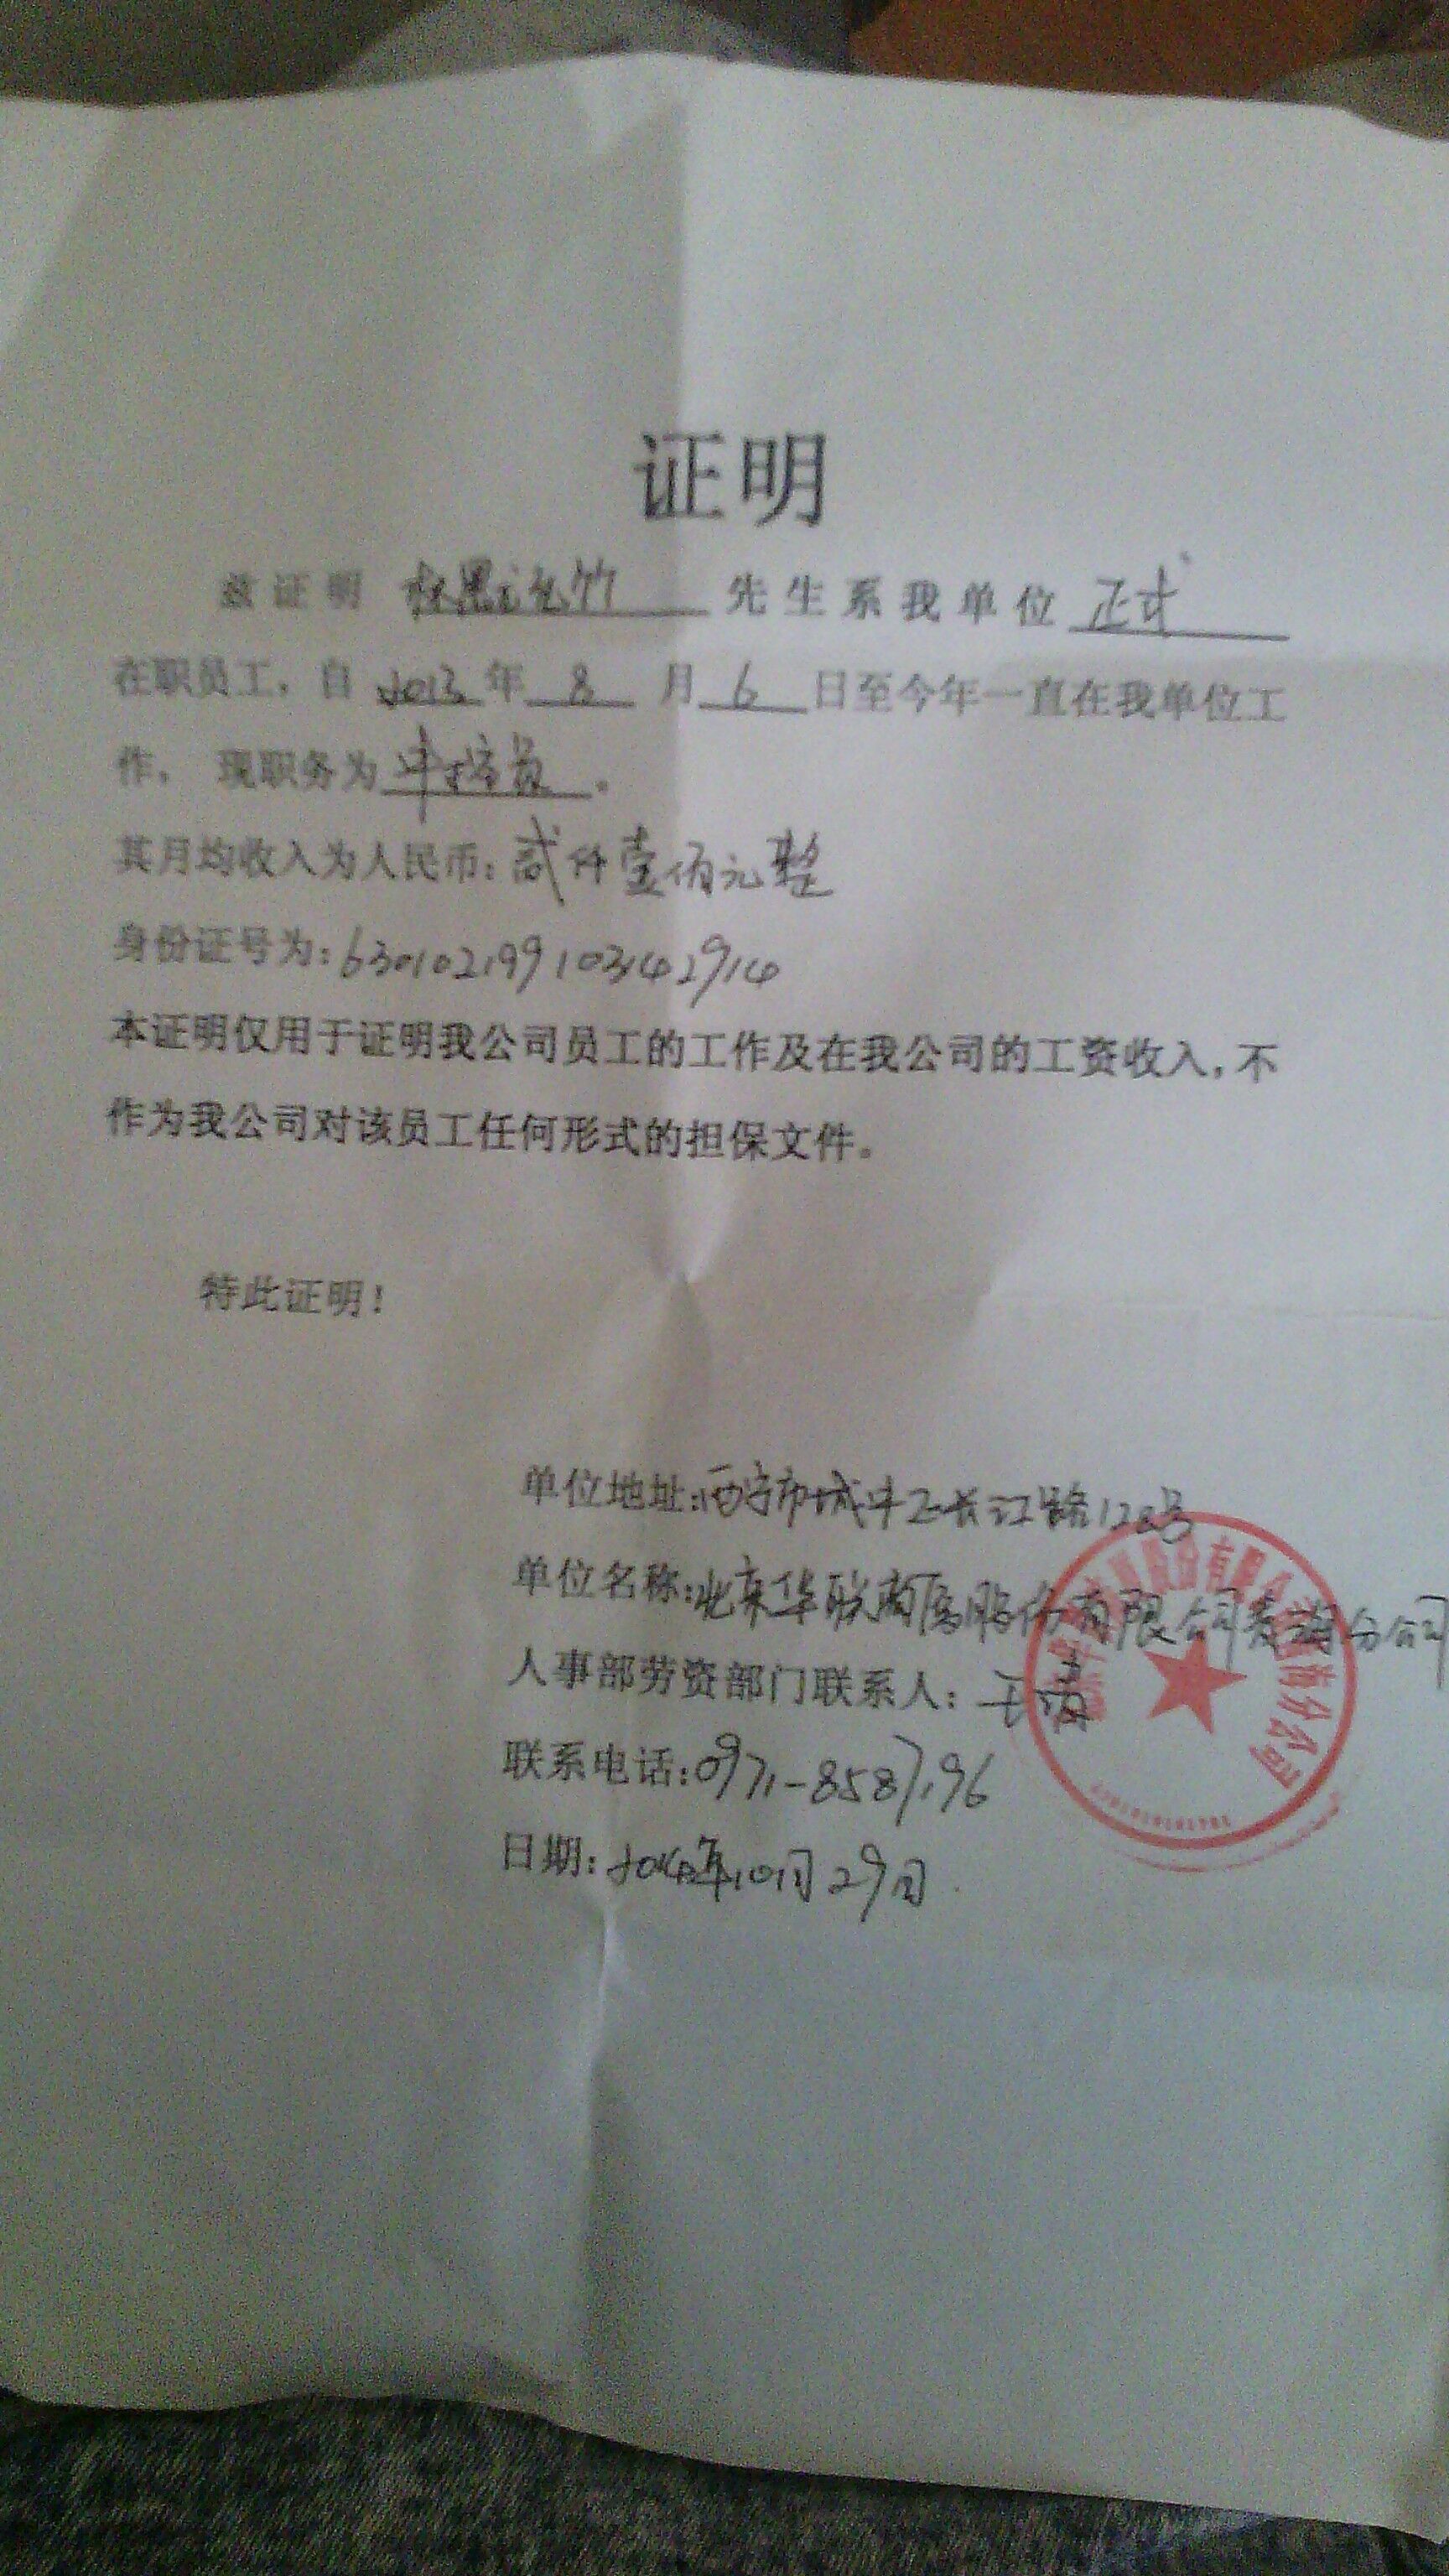 证明
兹证明 先生系我单位 正式
在职员工，自 2013 年 8 月 6 日至今年一直在我单位工
作， 现职务为 员。
其月均收入为人民币：贰仟壹佰元整
身份证号为：630102199103142914
本证明仅用于证明我公司员工的工作及在我公司的工资收入，不
作为我公司对该员工任何形式的担保文件。
特此证明！
单位地址：西宁市城中区长江路128号
单位名称：北京华联商厦股份有限公司青海分公司
人事部劳资部门联系人：王
联系电话：0971-8587196
日期：2014年10月29日
股份有限公司 分公司